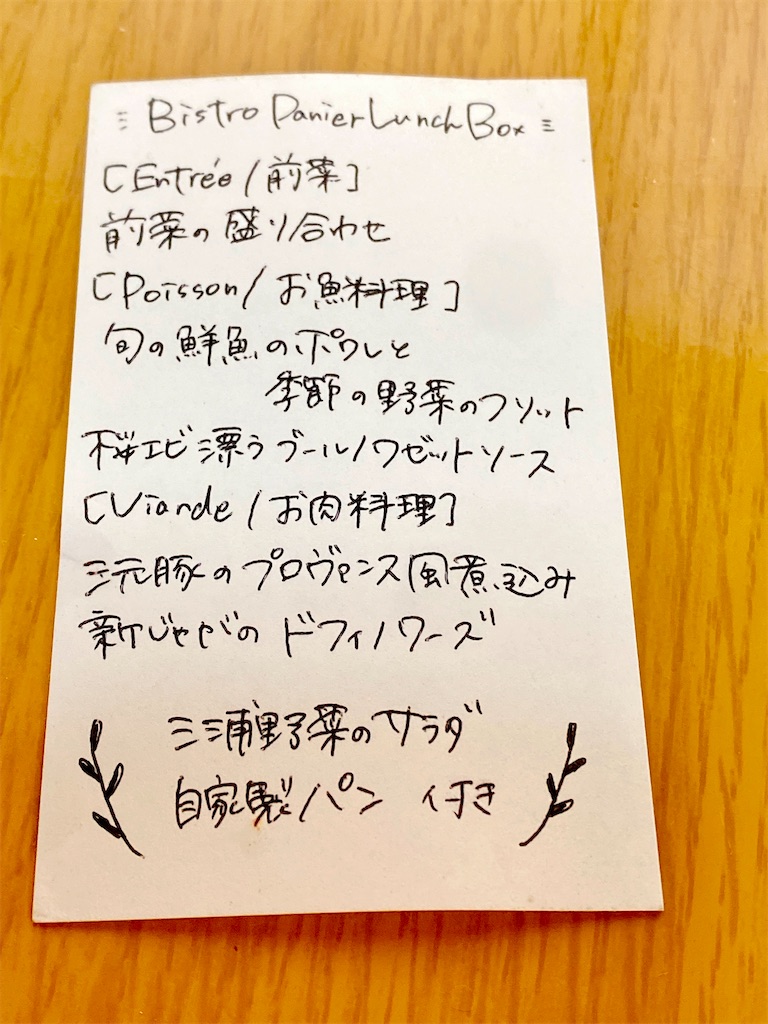 Bistro Panier Lunch Box
[Entrée / 前菜]
前菜の盛り合わせ
[Poisson / お魚料理]
旬の鮮魚のポワレと
季節の野菜のフリット
桜エビ漂うブールノワゼットソース
[Viande / お肉料理]
三元豚のプロヴァンス風煮込み
新じゃがのドフィノワーズ
三浦野菜のサラダ
自家製パン 付き